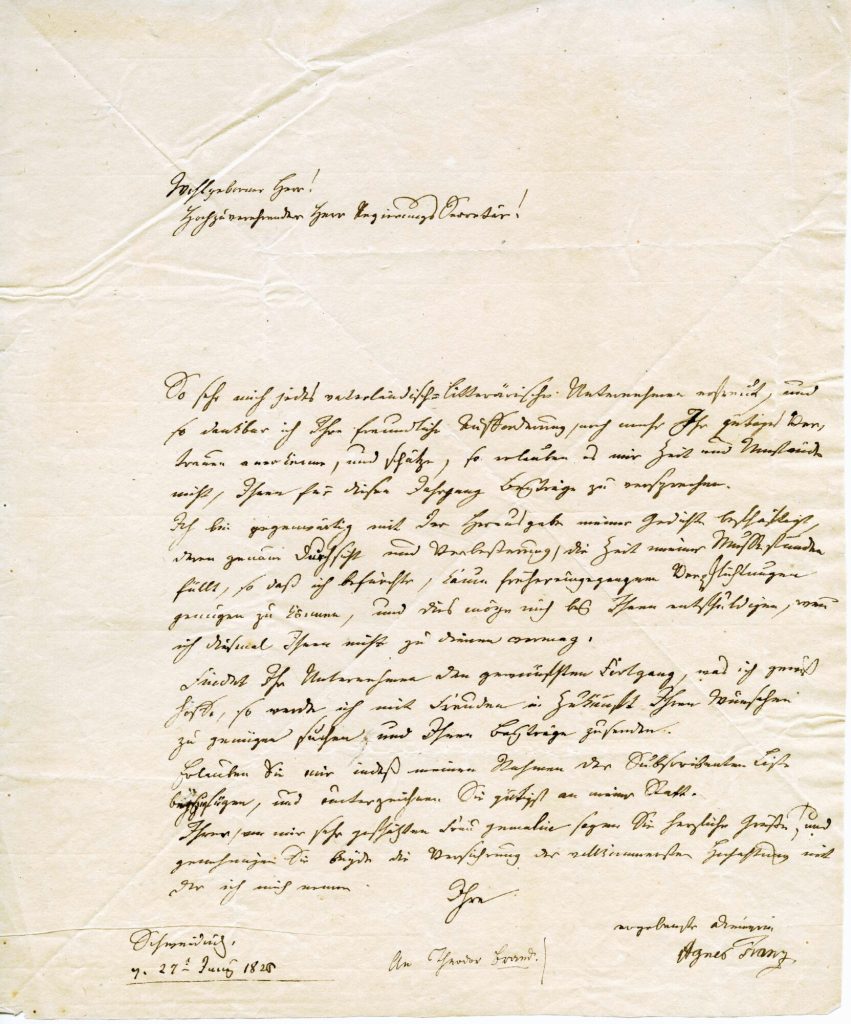 Wohlgeborner Herr!
Hochzuverehrender Herr Regierungs Secretär!
So sehr mich jedes vaterländisch-litterärische Unternehmen erfreut, und
so dankbar ich Ihre freundliche Aufforderung, noch mehr Ihr gütiges Ver,,
trauen anerkenne, und schätze, so erlauben es mir Zeit und Umstände
nicht, Ihnen für diesen Jahrgang Beyträge zu versprechen.
Ich bin gegenwärtig mit der Herausgabe meiner Gedichte beschäftigt,
deren genaue Durchsicht und Verbesserung, die Zeit meiner Mußestunden
füllt, so daß ich befürchte, kaum früher eingegangenen Verpflichtungen
genügen zu können, und dies möge mich bey Ihnen entschuldigen, wenn
ich diesmal Ihnen nicht zu dienen vermag.
Findet Ihr Unternehmen den gewünschten Fortgang, was ich gewiß
hoffe, so werde ich mit Freuden in Zukunft Ihren Wünschen
zu genügen suchen, und Ihnen Beyträge zusenden.
Erlauben Sie mir indeß meinen Nahmen der Subscribenten Liste
beyzufügen, und unterzeichnen Sie gütigst an meiner Statt.
Ihrer, von mir sehr geschätzten Frau Gemalin sagen Sie herzliche Grüße, und
genehmigen Sie beyde die Versicherung der vollkommensten Hochachtung mit
der ich mich nenne
Ihre
ergebenste Dienerin
Agnes Franz.
Schweidnitz,
d. 27t Juny 1825
An Theodor Brand.